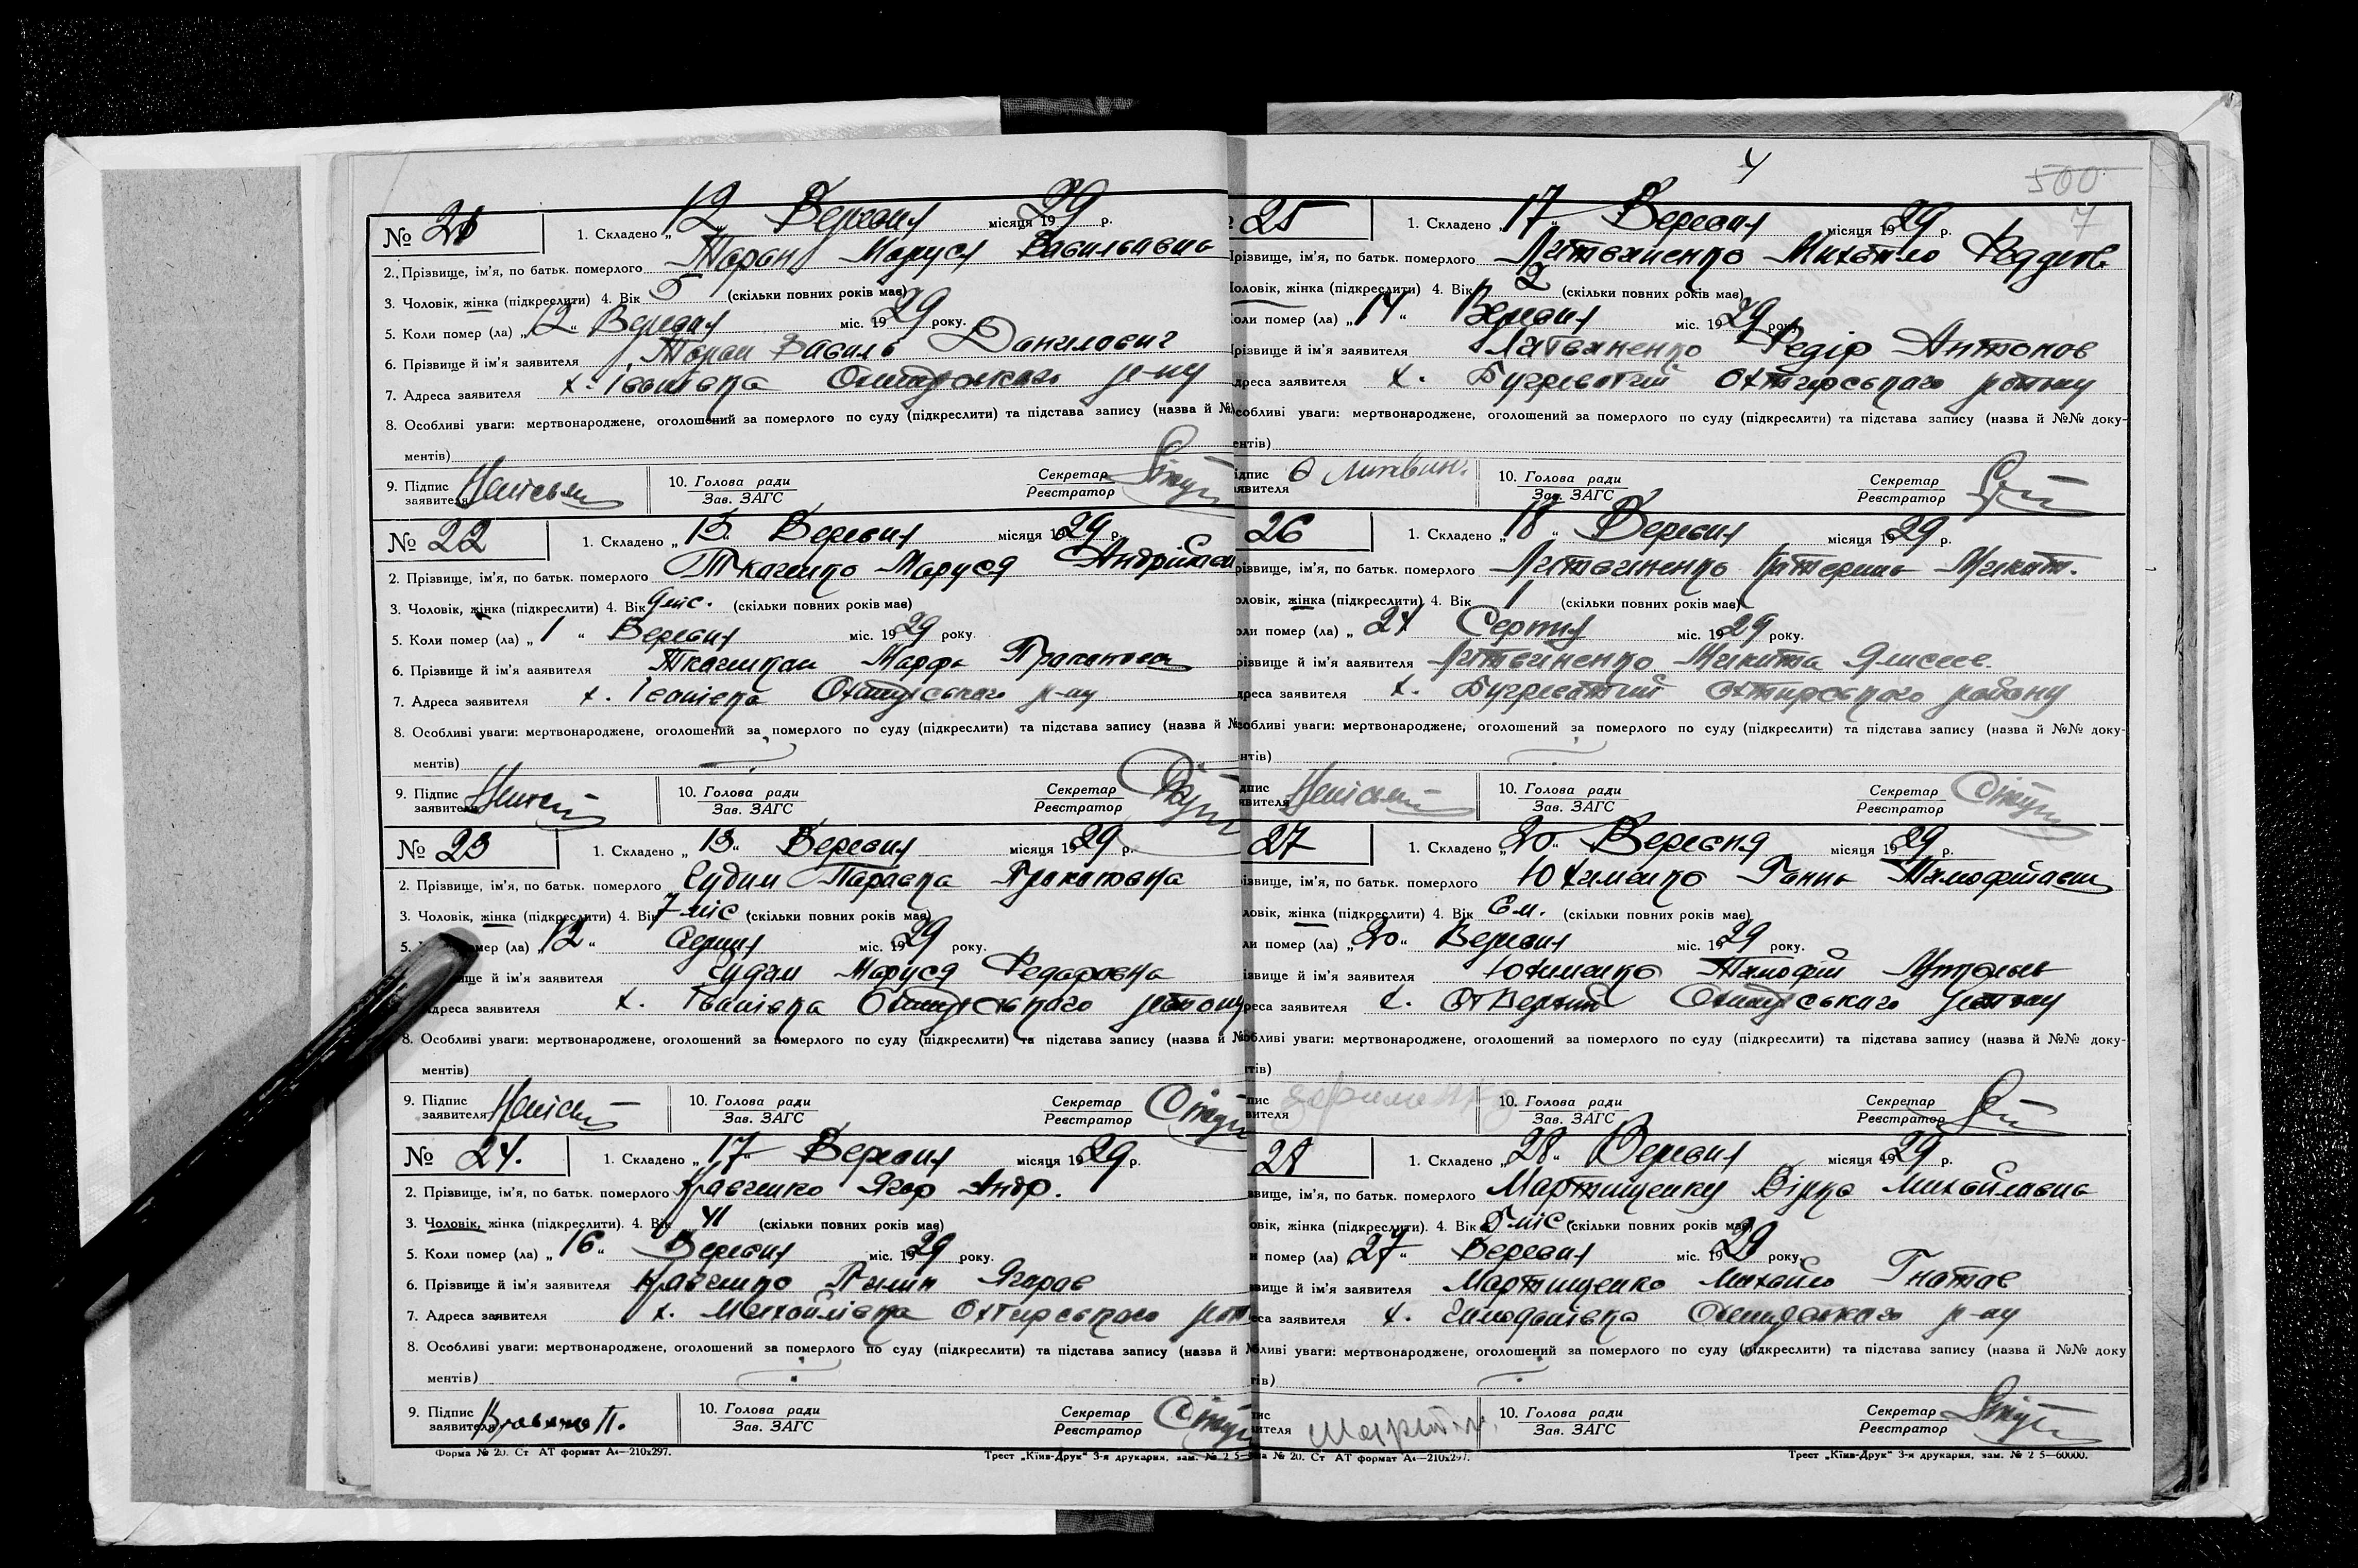 № 21
1. Складено „12„ Вересня місяця 1929 р.
2. Прізвище, ім'я, по батьк. померлого Таран Маруся Васильивна
3. Чоловік, жінка (підкреслити) 4. Вік 5 (скільки повних років має)
5. Коли помер (ла) „12„ Вересня міс. 1929 року.
6. Прізвище й ім'я заявителя Таран Василь Данилович
7. Адреса заявителя х. Іванівка р-ну
8. Особливі уваги: мертвонароджене, оголошений за померлого по суду (підкреслити) та підстава запису (назва й №
ментів)
9. Підпис заявителя
10. Голова ради
Зав. ЗАГС
Секретар
Реєстратор
№ 22
1. Складено „13„ Вересня місяця 1929 р.
2. Прізвище, ім'я, по батьк. померлого Ткаченко Маруся
3. Чоловік, жінка (підкреслити) 4. Вік 9 міс. (скільки повних років має)
5. Коли помер (ла) „1„ Вересня міс. 1929 року.
6. Прізвище й ім'я заявителя Марфа
7. Адреса заявителя х. Іванівка Охтирського р-ну
8. Особливі уваги: мертвонароджене, оголошений за померлого по суду (підкреслити) та підстава запису (назва й №
ментів)
9. Підпис заявителя
10. Голова ради
Зав. ЗАГС
Секретар
Реєстратор
№ 23
1. Складено „13„ Вересня місяця 1929 р.
2. Прізвище, ім'я, по батьк. померлого Параска Прокоповна
3. Чоловік, жінка (підкреслити) 4. Вік 7 міс (скільки повних років має)
5. мер (ла) „12„ Серпня міс. 1929 року.
ще й ім'я заявителя Маруся Федаровна
Адреса заявителя х. Іванівка Охтирського району
8. Особливі уваги: мертвонароджене, оголошений за померлого по суду (підкреслити) та підстава запису (назва й №
ментів)
9. Підпис заявителя
10. Голова ради
Зав. ЗАГС
Секретар
Реєстратор
№ 24.
1. Складено „17„ Вересня місяця 1929 р.
2. Прізвище, ім'я, по батьк. померлого Кравченко Ягор Андр.
3. Чоловік, жінка (підкреслити). 4. Вік 41 (скільки повних років має)
5. Коли помер (ла) „16„ Вересня міс. 1929 року.
6. Прізвище й ім'я заявителя Кравченко Ягорав
7. Адреса заявителя х. Михайлівка Охтирського
8. Особливі уваги: мертвонароджене, оголошений за померлого по суду (підкреслити) та підстава запису (назва й №
ментів)
9. Підпис заявителя П.
10. Голова ради
Зав. ЗАГС
Секретар
Реєстратор
Форма № 20. Ст АТ формат А4—210х297.
Трест „Київ-Друк" 3-я друкарня, зам. № 2 5—
4
500
7
25
1. Складено „17„ Вересня місяця 1929 р.
Прізвище, ім'я, по батьк. померлого Литвиненко Михайло
Чоловік, жінка (підкреслити) 4. Вік 2 (скільки повних років має)
оли помер (ла) „14„ Вересня міс. 1929 року.
Прізвище й ім'я заявителя Литвиненко Федір Антонов
дреса заявителя х. Бугреватий Охтирського району
собливі уваги: мертвонароджене, оголошений за померлого по суду (підкреслити) та підстава запису (назва й №№ доку-
ентів)
ідпис аявителя Литвин.
10. Голова ради
Зав. ЗАГС
Секретар
Реєстратор
26
1. Складено „18„ Вересня місяця 1929 р.
різвище, ім'я, по батьк. померлого Литвиненко Катерина Микит.
оловік, жінка (підкреслити) 4. Вік 1 (скільки повних років має)
оли помер (ла) „ 24 Серпня міс. 1929 року.
різвище й ім'я заявителя Литвиненко Микита Ялисеев.
дреса заявителя х. Бугреватий Охтирського району
собливі уваги: мертвонароджене, оголошений за померлого по суду (підкреслити) та підстава запису (назва й №№ доку-
нтів)
дпис явителя
10. Голова ради
Зав. ЗАГС
Секретар
Реєстратор
27
1. Складено „20„ Вересня місяця 1929 р.
ізвище, ім'я, по батьк. померлого Юхименко Ганна
ловік, жінка (підкреслити) 4. Вік 6 м. (скільки повних років має)
ли помер (ла) „20„ Вересня міс. 1929 року.
ізвище й ім'я заявителя Юхименко Тимофій
реса заявителя х. Охтирського району
обливі уваги: мертвонароджене, оголошений за померлого по суду (підкреслити) та підстава запису (назва й №№ доку-
тів)
пис вителя
10. Голова ради
Зав. ЗАГС
Секретар
Реєстратор
28
1. Складено „28„ Вересня місяця 1929 р.
звище, ім'я, по батьк. померлого Мартищенко Вірка Михайлавна
овік, жінка (підкреслити). 4. Вік міс. (скільки повних років має)
и помер (ла) 27„ Вересня міс. 1929 року.
звище й ім'я заявителя Мартищенко Михайло Гнатав
еса заявителя х. р-ну
бливі уваги: мертвонароджене, оголошений за померлого по суду (підкреслити) та підстава запису (назва й №№ доку
тів)
пис ителя
10. Голова ради
Зав. ЗАГС
Секретар
Реєстратор
а № 20. Ст АТ формат А4—210х297.
Трест „Київ-Друк" 3-я друкарня, зам. № 2 5—60000.